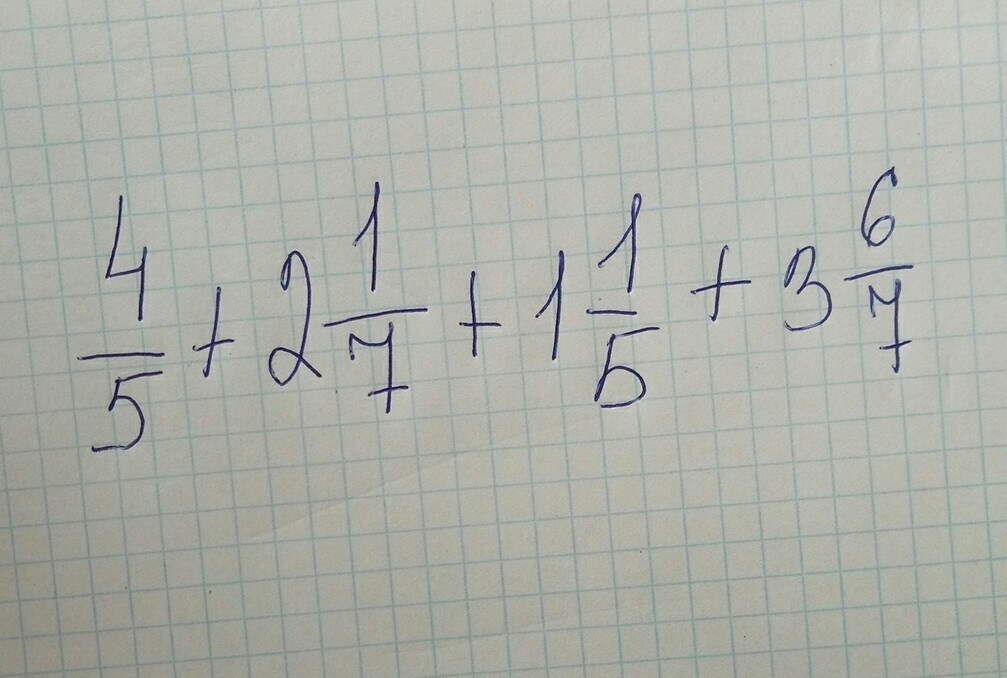 4/5 + 2 1/7 + 1 1/5 + 3 6/7